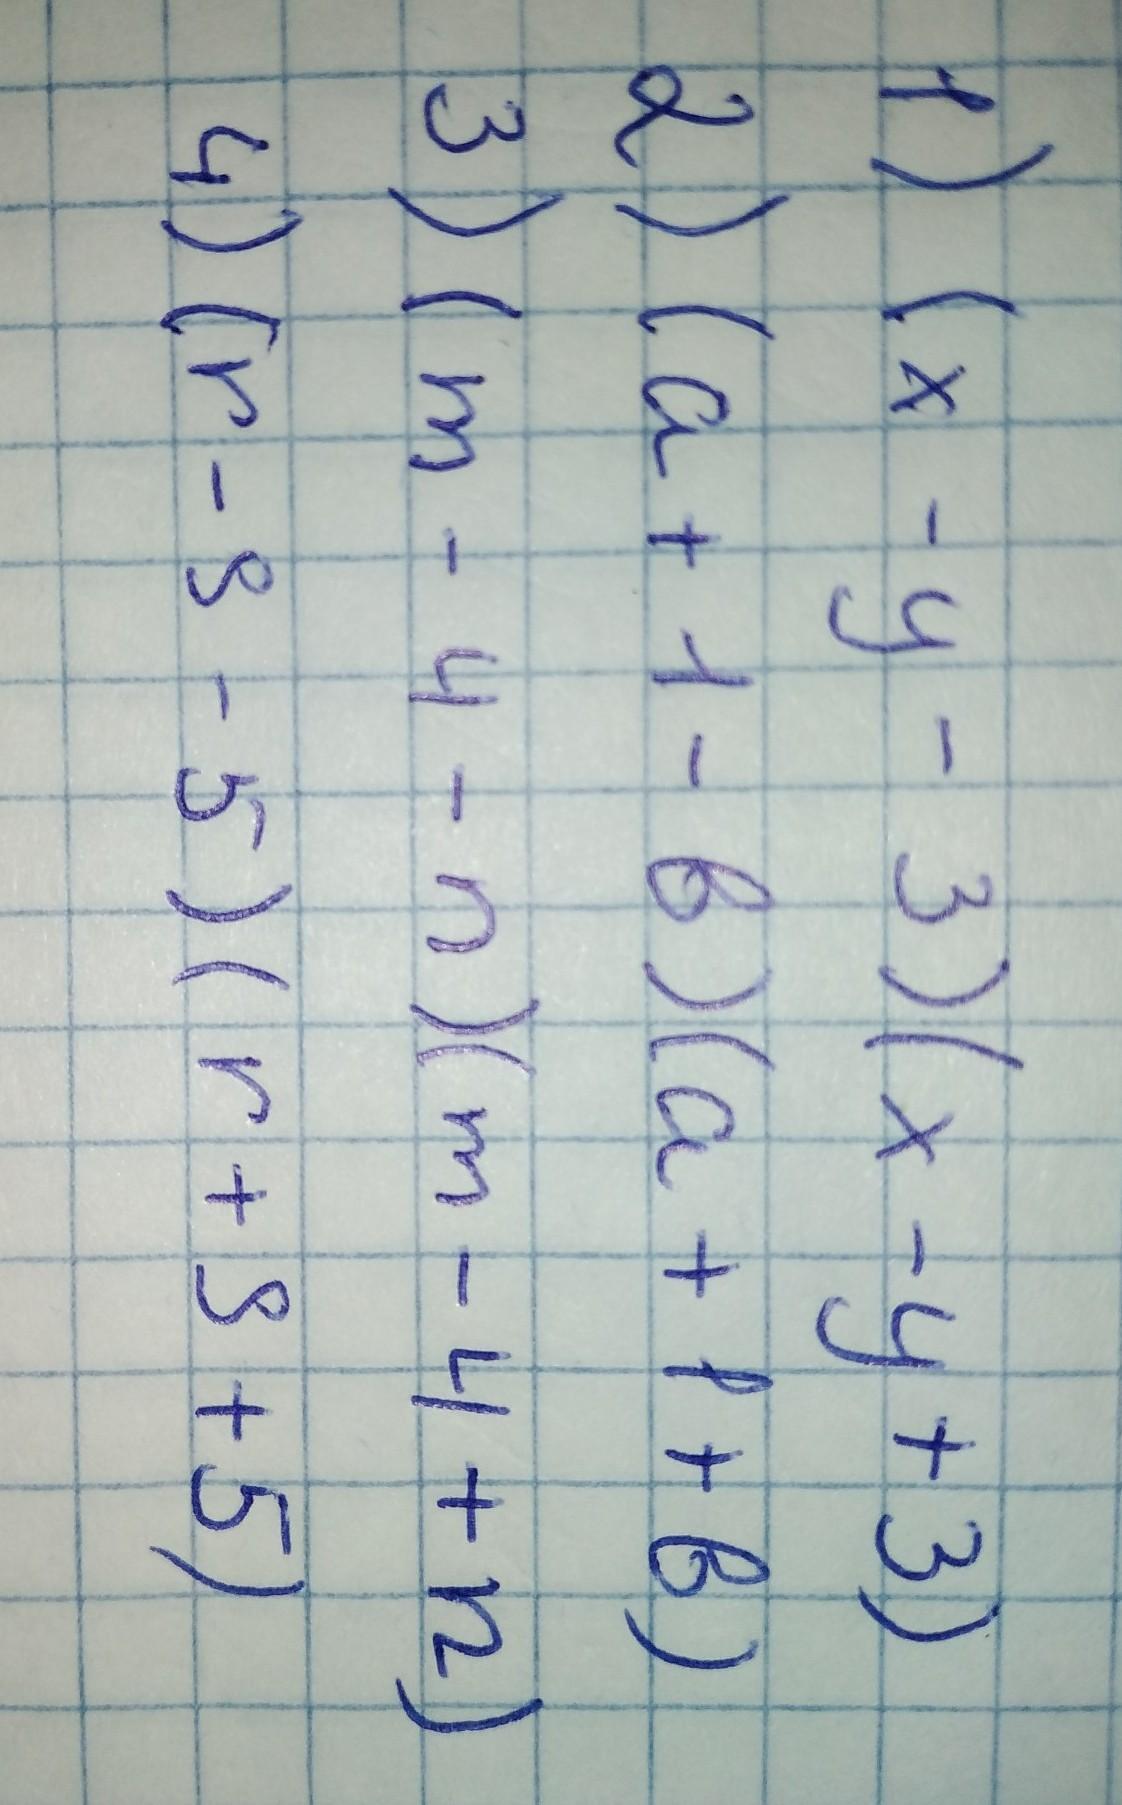 1) (x - y - 3)(x - y + 3)
2) (a + 1 - b)(a + 1 + b)
3) (m - 4 - n)(m - 4 + n)
4) (r - s - 5)(r + s + 5)